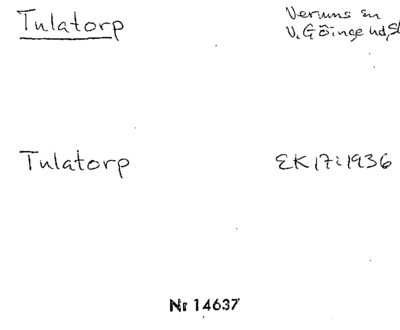 Tulatorp
Verums sn
V. Göinge hd, Sk
Tulatorp
EK 17:1936
Nr 14637